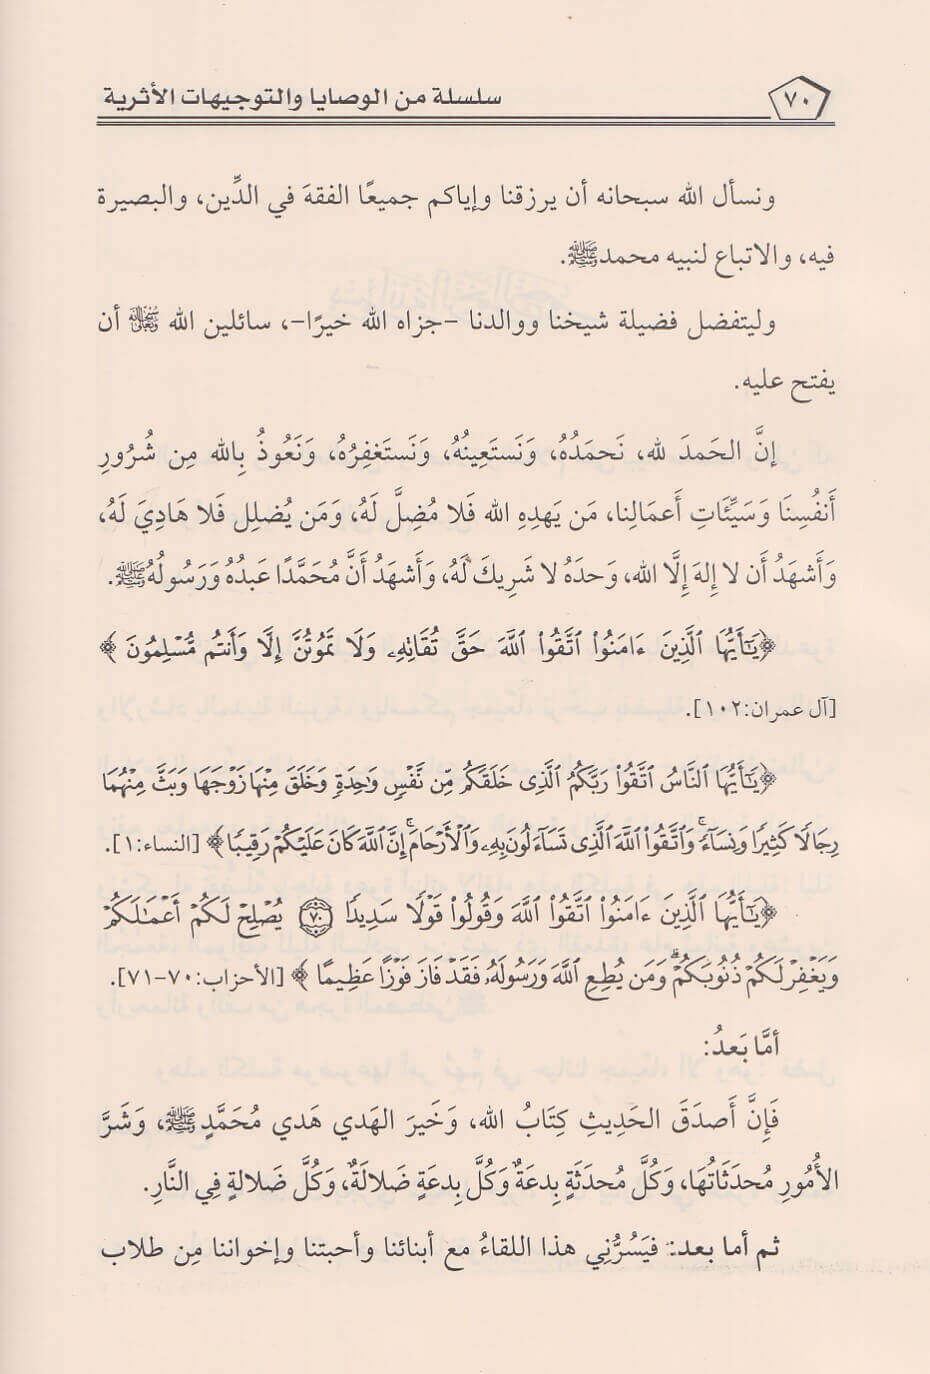 ٧٠
سلسلة من الوصايا والتوجيهات الأثرية
ونسأل الله سبحانه أن يرزقنا وإياكم جميعًا الفقهَ في الدِّين، والبصيرة
فيه، والاتباع لنبيه محمدﷺ.
وليتفضل فضيلة شيخنا ووالدنا -جزاه الله خيرًا-، سائلين الله ﷾ أن
يفتح عليه.
إنَّ الحَمدَ لله، نَحمَدُهُ، وَنَستَعِينُهُ، وَنَستَغفِرُهُ، وَنَعُوذُ بِالله مِن شُرُورِ
أَنفُسِنَا وَسَيِّئَاتِ أَعمَالِنا، مَن يَهدِهِ الله فَلا مُضِلَّ لَهُ، وَمَن يُضلِل فَلا هَادِيَ لَهُ،
وَأَشهَدُ أَن لا إلهَ إلَّا الله، وَحدَهُ لا شَرِيكَ لَهُ، وَأَشهَدُ أَنَّ مُحَمَّدًا عَبدُهُ وَرَسُولُهُﷺ.
﴿يَٰٓأَيُّهَا ٱلَّذِينَ ءَامَنُوا۟ ٱتَّقُوا۟ ٱللَّهَ حَقَّ تُقَاتِهِۦ وَلَا تَمُوتُنَّ إِلَّا وَأَنتُم مُّسْلِمُونَ﴾
[آل عمران:١٠٢].
﴿يَٰٓأَيُّهَا ٱلنَّاسُ ٱتَّقُوا۟ رَبَّكُمُ ٱلَّذِى خَلَقَكُم مِّن نَّفْسٍ وَٰحِدَةٍ وَخَلَقَ مِنْهَا زَوْجَهَا وَبَثَّ مِنْهُمَا
رِجَالًا كَثِيرًا وَنِسَآءً ۚ وَٱتَّقُوا۟ ٱللَّهَ ٱلَّذِى تَسَآءَلُونَ بِهِۦ وَٱلْأَرْحَامَ ۚ إِنَّ ٱللَّهَ كَانَ عَلَيْكُمْ رَقِيبًا﴾ [النساء:١].
﴿يَٰٓأَيُّهَا ٱلَّذِينَ ءَامَنُوا۟ ٱتَّقُوا۟ ٱللَّهَ وَقُولُوا۟ قَوْلًا سَدِيدًا ٧٠ يُصْلِحْ لَكُمْ أَعْمَٰلَكُمْ
وَيَغْفِرْ لَكُمْ ذُنُوبَكُمْ ۗ وَمَن يُطِعِ ٱللَّهَ وَرَسُولَهُۥ فَقَدْ فَازَ فَوْزًا عَظِيمًا﴾ [الأحزاب:٧٠-٧١].
أمَّا بَعدُ:
فَإِنَّ أَصدَقَ الحَدِيثِ كِتَابُ الله، وَخَيرَ الهَدي هَدي مُحَمَّدٍﷺ، وَشَرَّ
الأُمُورِ مُحدَثَاتُهَا، وَكُلَّ مُحدَثَةٍ بِدعَةٌ وَكُلَّ بِدعَةٍ ضَلالَةٌ، وَكُلَّ ضَلالةٍ فِي النَّارِ.
ثم أما بعد: فيَسُرُّنِي هذا اللقاءُ مع أبنائنا وأحبتنا وإخواننا مِن طلاب